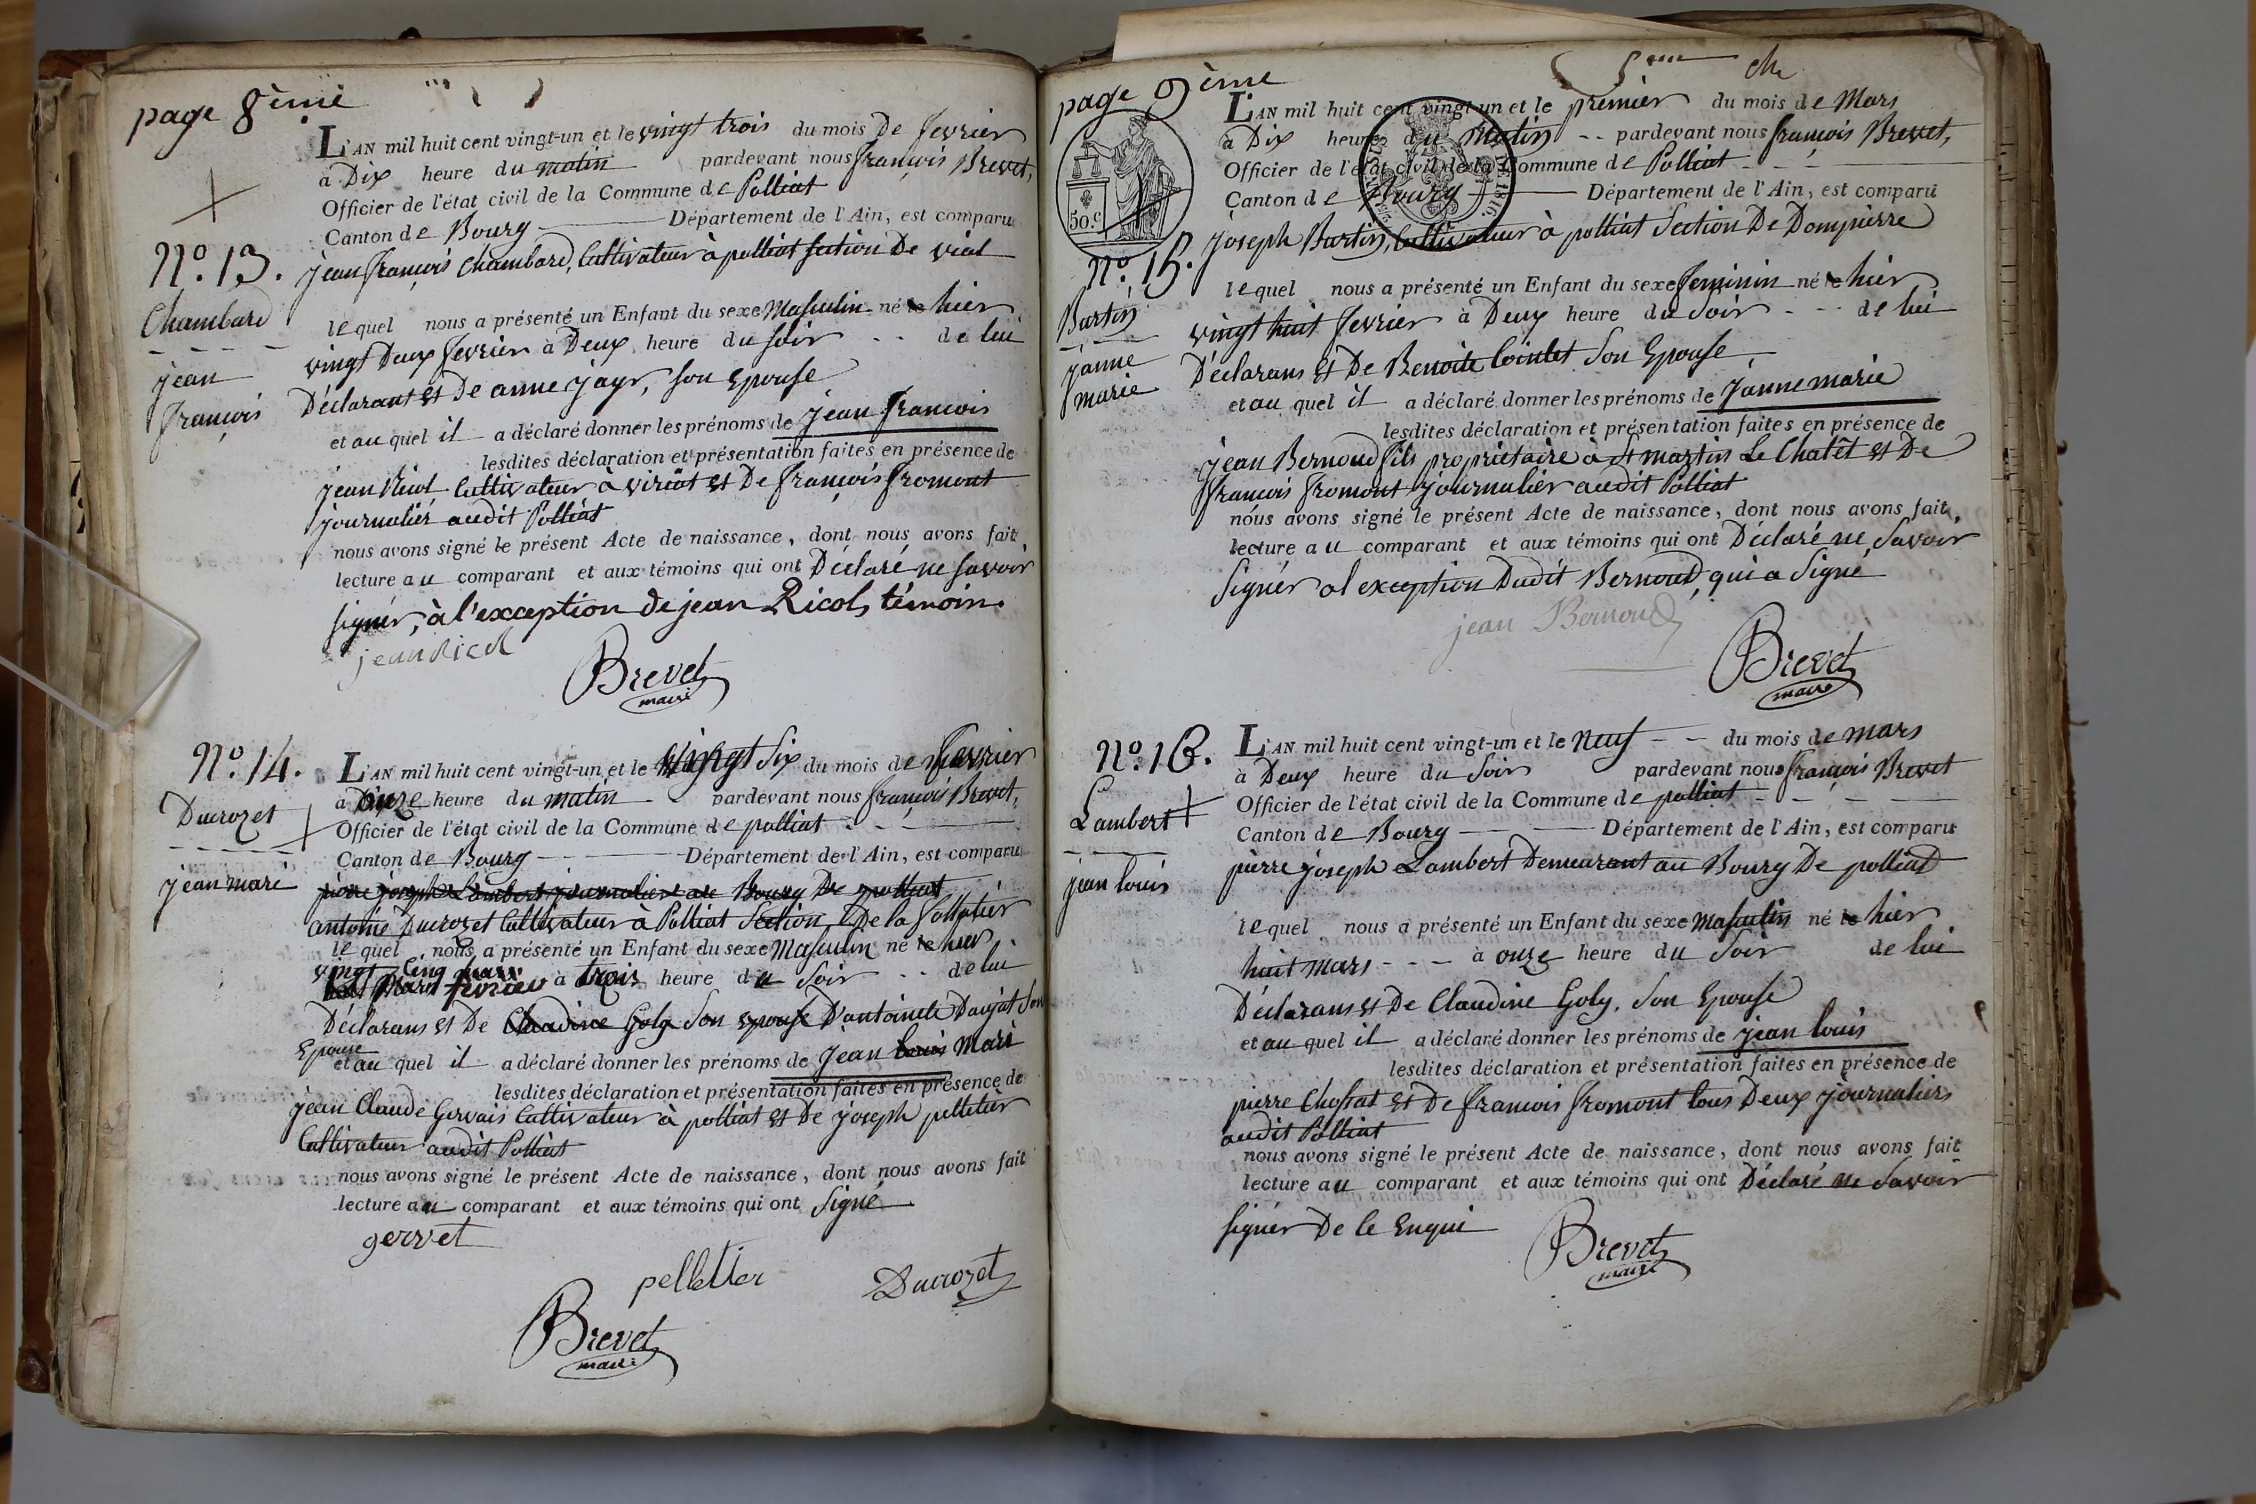 page 8ème
L'AN mil huit cent vingt-un et le vingt trois du mois De fevrier
à Dix heure du matin pardevant nous françois Brevet,
Officier de l'état civil de la Commune de Polliat
Canton de Bourg Département de l'Ain, est comparu
N.o 13. jean françois Chambard, Cultivateur à polliat Section De vial
Chambard
jean
françois
lequel nous a présenté un Enfant du sexe Masculin né le hier
vingt Deux fevrier à Deux heure du soir de lui
Déclarant et De anne jayr, son epouse
et au quel il a déclaré donner les prénoms de jean francois
lesdites déclaration et présentation faites en présence de
jean Ricol Cultivateur à viriat et De françois fromont
journalier audit Polliat
nous avons signé le présent Acte de naissance, dont nous avons fait
lecture au comparant et aux témoins qui ont Déclaré ne savoir
signér, à l'exception de jean Ricol, témoin.
jean Ricol
Brevet
maire
N.o 14.
Ducrozet
jean mari
L'AN mil huit cent vingt-un et le vingt Six du mois de fevrier
à Onze heure du matin pardevant nous françois Brevet,
Officier de l'état civil de la Commune de polliat
Canton de Bourg Département de l'Ain, est comparu
pierre joseph Lambert journalier au Bourg De polliat
antoine Ducrozet Cultivateur à Polliat Section De la
lequel nous a présenté un Enfant du sexe Masculin né le hier
vingt Cinq
fevrier à trois heure du Soir de lui
Déclarans et De Claudine Goly Son epouse D'antoinete Daujat Son
Epouse
et au quel il a déclaré donner les prénoms de jean louis Mari
lesdites déclaration et présentation faites en présence de
jean Claude Gervais Cultivateur à polliat et De joseph pelletier
Cultivateur audit Polliat
nous avons signé le présent Acte de naissance, dont nous avons fait
lecture au comparant et aux témoins qui ont Signé
gervet
pelletier
Ducrozet
Brevet
maire
page 9ème
5eme
50.c
1816.
L'AN mil huit cent vingt-un et le premier du mois de Mars
à Dix heure du Matin pardevant nous françois Brevet,
Officier de l'état civil de la Commune de Polliat
Canton de Bourg Département de l'Ain, est comparu
joseph Burtin, Cultivateur à polliat Section De Dompierre
N.o 15.
Burtin
janne
marie
lequel nous a présenté un Enfant du sexe feminin né le hier
vingt huit fevrier à Deux heure du Soir de lui
Déclarans et De Benoite Cointet Son Epouse
et au quel il a déclaré donner les prénoms de janne marie
lesdites déclaration et présentation faites en présence de
jean Bernoud fils propriétaire à st martin Le Chatêt et De
francois fromont journalier audit Polliat
nous avons signé le présent Acte de naissance, dont nous avons fait
lecture au comparant et aux témoins qui ont Déclaré ne Savoir
Signér al exception Dudit Bernoud, qui a Signé
jean Bernoud
Brevet
maire
N.o 16.
Lambert
jean louis
L'AN mil huit cent vingt-un et le Neuf du mois de mars
à Deux heure du Soir pardevant nous françois Brevet
Officier de l'état civil de la Commune de polliat
Canton de Bourg Département de l'Ain, est comparu
pierre joseph Lambert Demeurant au Bourg De polliat
lequel nous a présenté un Enfant du sexe Masculin né le hier
huit mars à onze heure du Soir de lui
Déclarans et De Claudine Goly, Son Epouse
et au quel il a déclaré donner les prénoms de jean louis
lesdites déclaration et présentation faites en présence de
pierre Chossat et De francois fromont tous Deux journaliers
audit Polliat
nous avons signé le présent Acte de naissance, dont nous avons fait
lecture au comparant et aux témoins qui ont Déclaré ne Savoir
signér De le Enqui
Brevet
maire